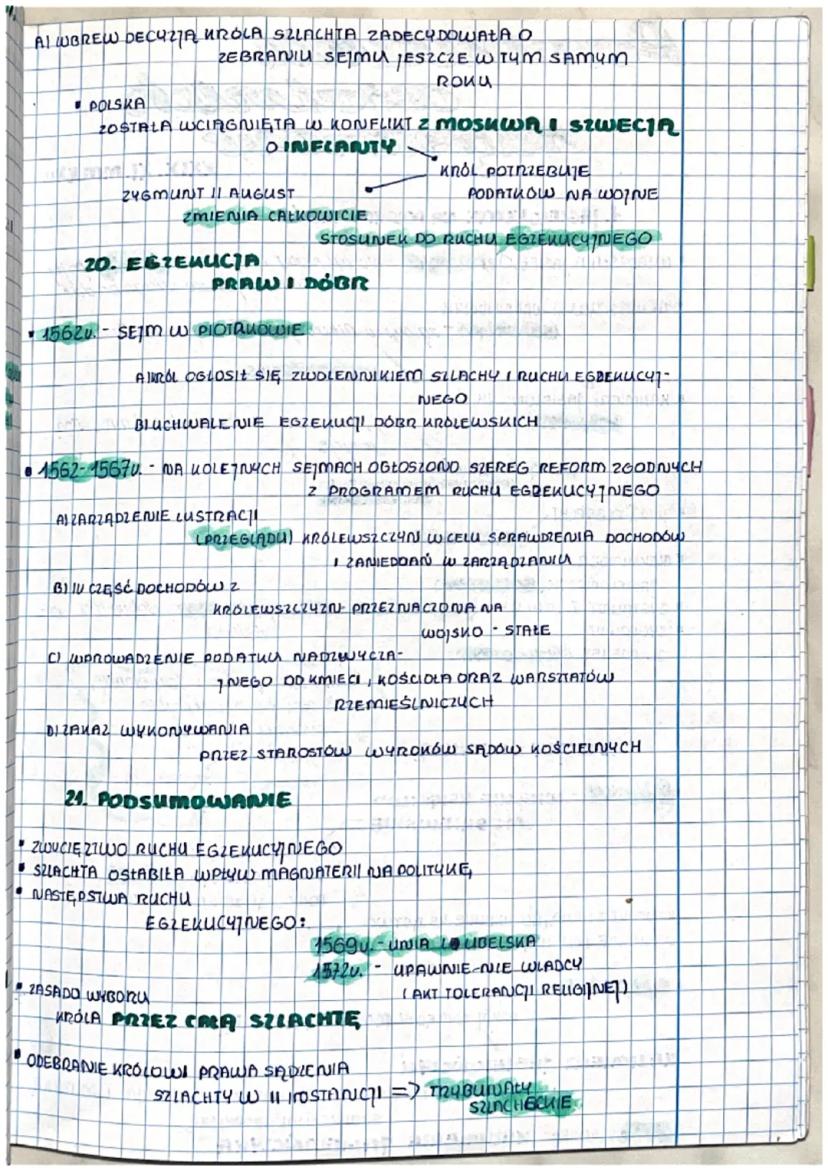 A) WBREW DECYZJĄ KRÓLA SZLACHTA ZADECYDOWAŁA O
ZEBRANIU SEJMU JESZCZE W TYM SAMYM
ROKU
• POLSKA
ZOSTAŁA WCIĄGNIĘTA W KONFLIKT Z MOSKWĄ I SZWECJĄ
O INFLANTY
KRÓL POTRZEBUJE
ZYGMUNT II AUGUST
PODATKÓW NA WOJNE
ZMIENIA CAŁKOWICIE
STOSUNEK DO RUCHU EGZEKUCYJNEGO
20. EGZEKUCJA
PRAW I DÓBR
• 1562r. - SEJM W PIOTRKOWIE
A) KRÓL OGŁOSIŁ SIĘ ZWOLENNIKIEM SZLACHY I RUCHU EGZEKUCYJ-
NEGO
B) UCHWALENIE EGZEKUCJI DÓBR KRÓLEWSKICH
• 1562-1567r. - NA KOLEJNYCH SEJMACH OGŁOSZONO SZEREG REFORM ZGODNYCH
Z PROGRAMEM RUCHU EGZEKUCYJNEGO
A) ZARZĄDZENIE LUSTRACJI
(PRZEGLĄDU) KRÓLEWSZCZYN W CELU SPRAWDZENIA DOCHODÓW
I ZANIEDBAŃ W ZARZĄDZANIU
B) IV CZĘŚĆ DOCHODÓW Z
KRÓLEWSZCZYZN PRZEZNACZONA NA
WOJSKO - STAŁE
C) WPROWADZENIE PODATKU NADZWYCZA-
JNEGO OD KMIECI, KOŚCIOŁA ORAZ WARSZTATÓW
RZEMIEŚLNICZYCH
D) ZAKAZ WYKONYWANIA
PRZEZ STAROSTÓW WYROKÓW SĄDÓW KOŚCIELNYCH
21. PODSUMOWANIE
• ZWYCIĘZTWO RUCHU EGZEKUCYJNEGO
• SZLACHTA OSŁABIŁA WPŁYW MAGNATERII NA POLITYKĘ,
• NASTĘPSTWA RUCHU
EGZEKUCYJNEGO:
1569r. - UNIA LUBELSKA
1572r. - UPAWNIE-NIE WŁADCY
(AKT TOLERANCJI RELIGIJNEJ)
• ZASADO WYBORU
KRÓLA PRZEZ CAŁĄ SZLACHTĘ
• ODEBRANIE KRÓLOWI PRAWA SĄDZENIA
SZLACHTY W II INSTANCJI => TRYBUNAŁY
SZLACHECKIE